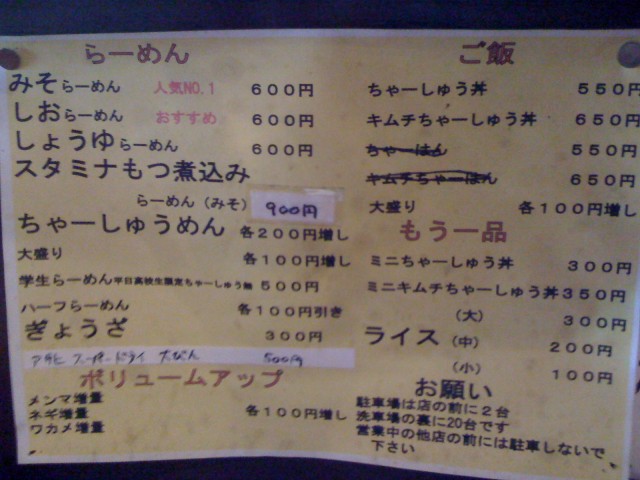 らーめん
みそらーめん 人気NO.1 600円
しおらーめん おすすめ 600円
しょうゆらーめん 600円
スタミナもつ煮込み
らーめん(みそ) 900円
ちゃーしゅうめん 各200円増し
大盛り 各100円増し
学生らーめん平日高校生限定ちゃーしゅう無 500円
ハーフらーめん 各100円引き
ぎょうざ 300円
アサヒ スーパードライ 大びん 500円
ボリュームアップ
メンマ増量
ネギ増量 各100円増し
ワカメ増量
ご飯
ちゃーしゅう丼 550円
キムチちゃーしゅう丼 650円
ちゃーはん 550円
キムチちゃーはん 650円
大盛り 各100円増し
もう一品
ミニちゃーしゅう丼 300円
ミニキムチちゃーしゅう丼350円
(大) 300円
ライス(中) 200円
(小) 100円
お願い
駐車場は店の前に2台
洗車場の裏に20台です
営業中の他店の前には駐車しないで
下さい